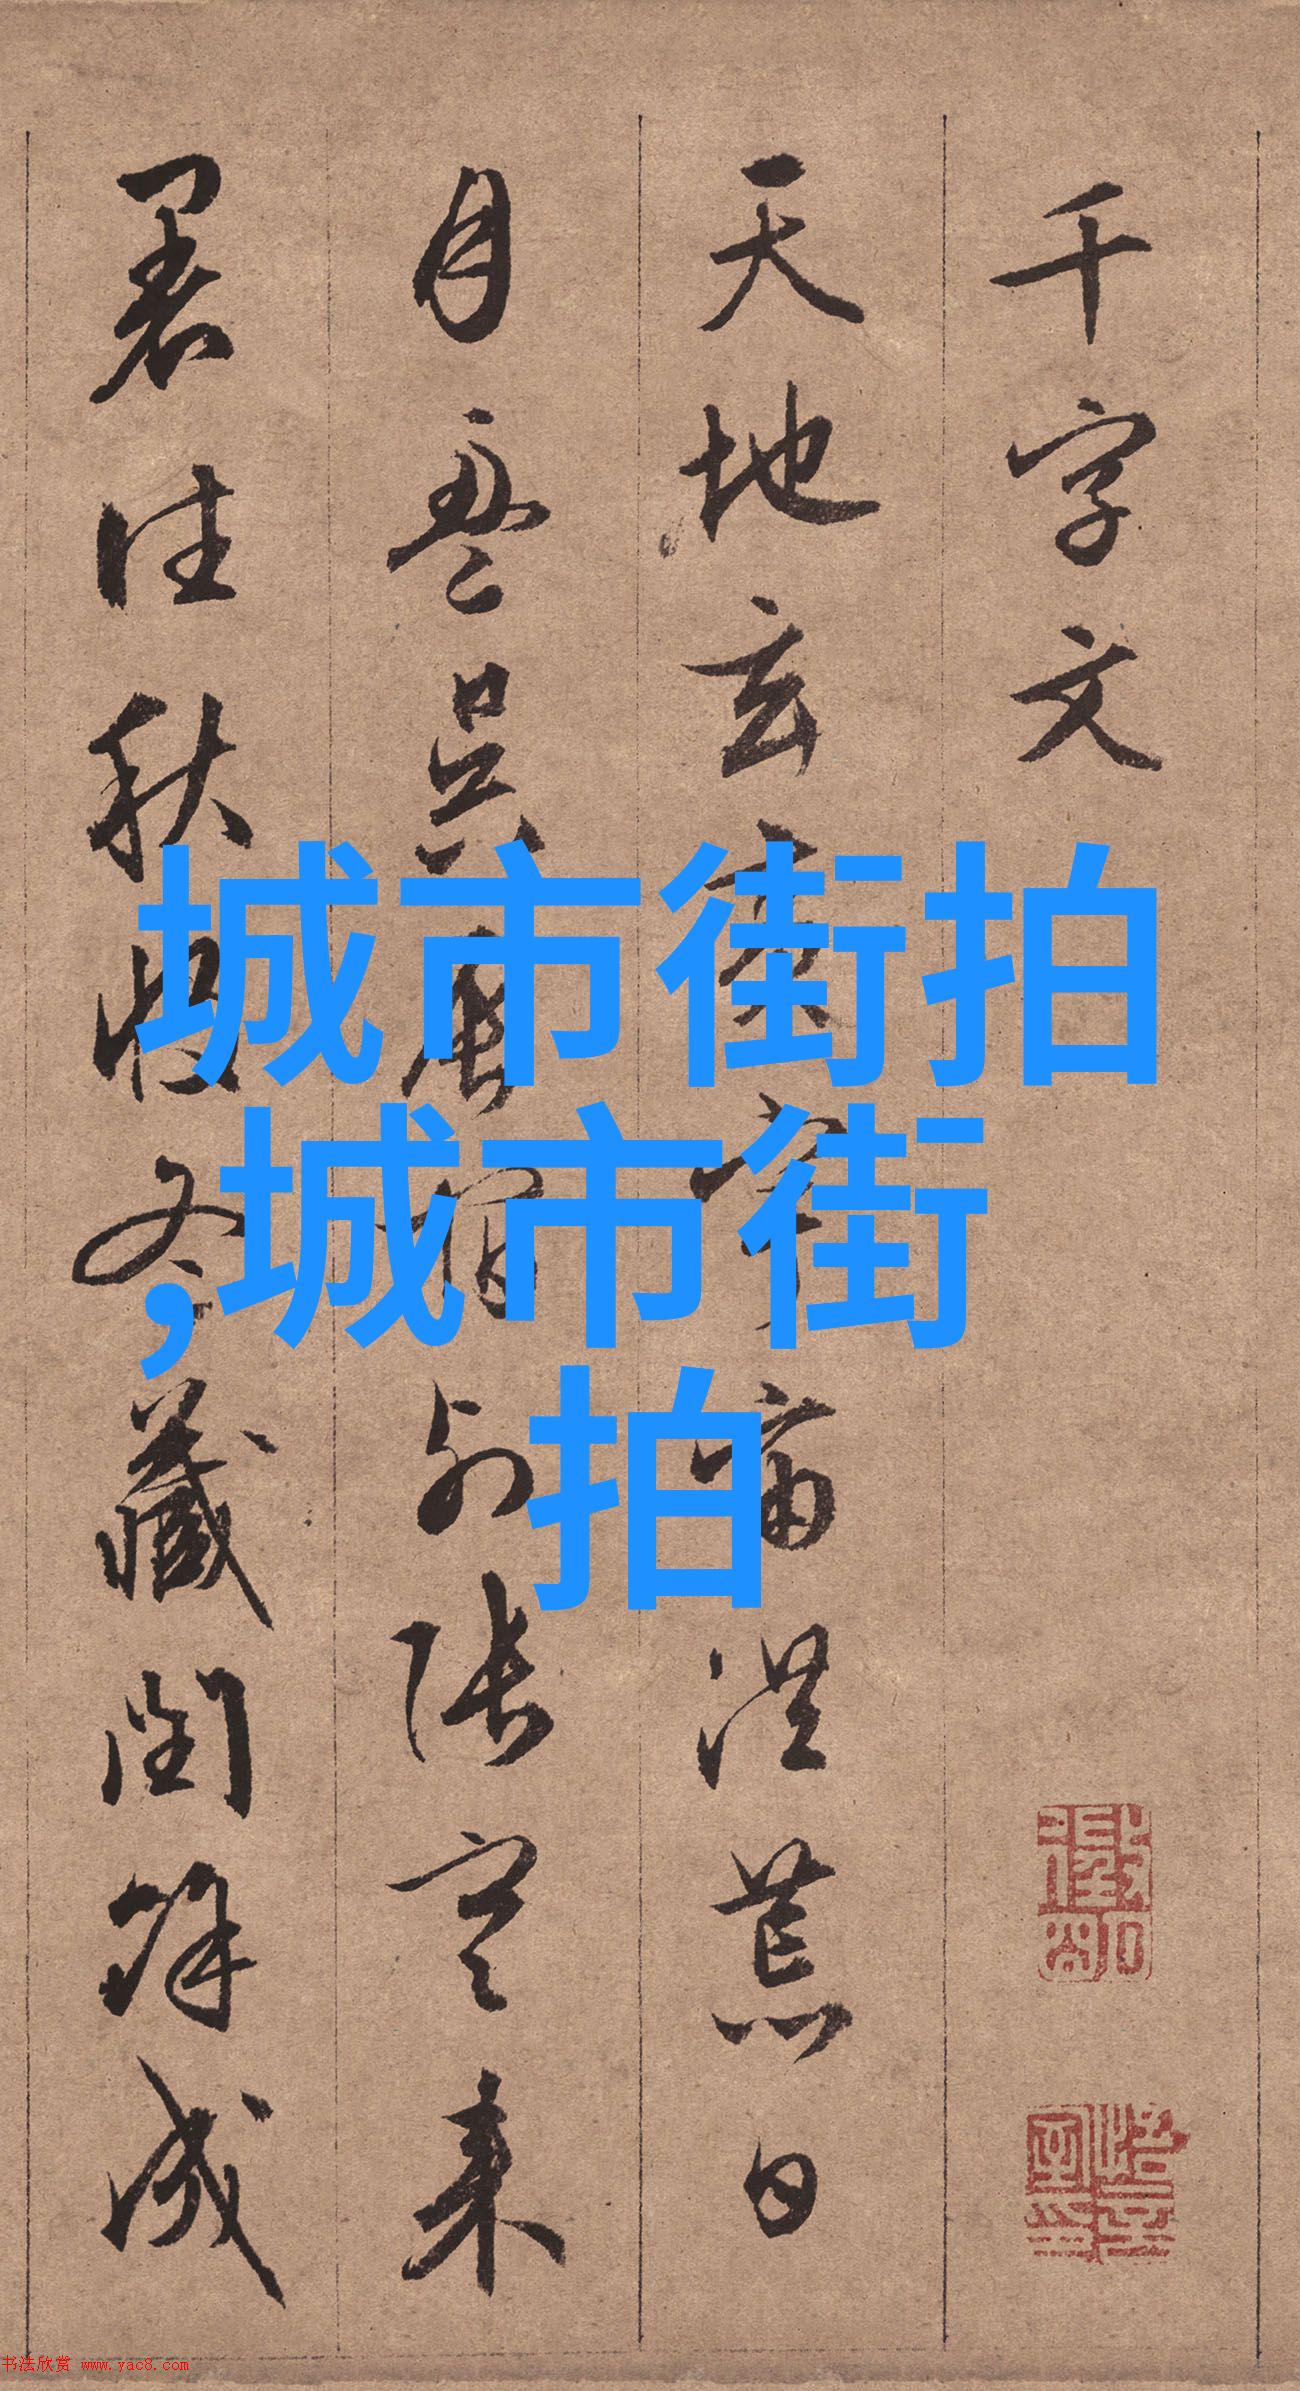 千字文
天地玄黄宇宙洪荒日
月盈昃辰宿列張寒来
暑往秋收冬藏閏餘成
城市街拍
,城市街
拍
书法欣赏 www.yac8.com